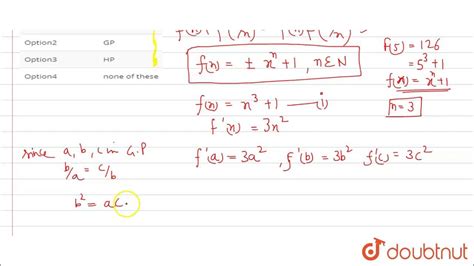 f(x) f(1/x)
Option2 GP
Option3 HP
Option4 none of these
f(x) = ± xⁿ + 1 , n ∈ N
f(5) = 126
= 5³ + 1
f(x) = xⁿ + 1
n = 3
f(x) = x³ + 1 —(i)
f'(x) = 3x²
since a, b, c in G.P
b/a = c/b
b² = ac.
f'(a) = 3a² , f'(b) = 3b² f'(c) = 3c²
doubtnut